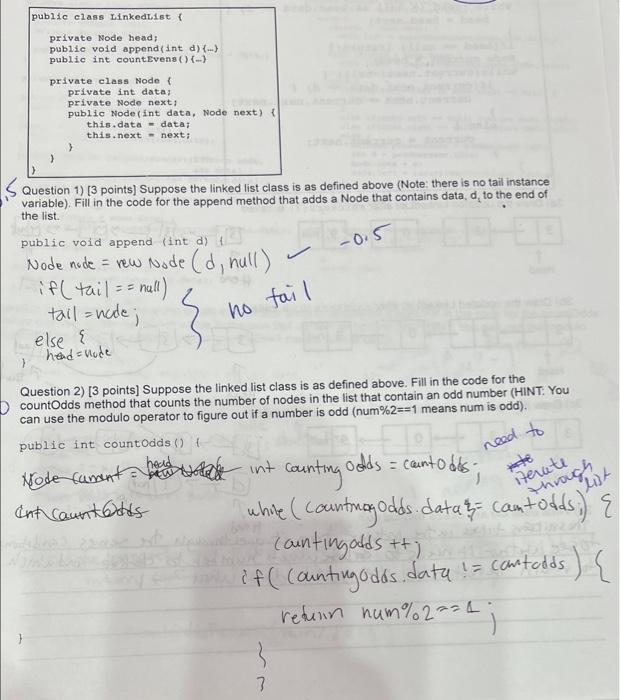 public class LinkedList {
private Node head;
public void append(int d){…}
public int countEvens(){…}
private class Node {
private int data;
private Node next;
public Node(int data, Node next) {
this.data = data;
this.next = next;
}
}
}
Question 1) [3 points] Suppose the linked list class is as defined above (Note: there is no tail instance
variable). Fill in the code for the append method that adds a Node that contains data, d, to the end of
the list.
public void append (int d) {
-0.5
Node node = new Node (d, null) ✓
if( tail == null)
tail = node;
no tail
else {
head = node
}
Question 2) [3 points] Suppose the linked list class is as defined above. Fill in the code for the
0 countOdds method that counts the number of nodes in the list that contain an odd number (HINT: You
can use the modulo operator to figure out if a number is odd (num%2==1 means num is odd).
public int countOdds() {
need to
iterate
through
list
Node current = head
int counting Odds = countOdds;
int countOdds
while (countingOdds.data = countOdds;) {
countingodds ++;
if( countingodds.data != countodds ) {
return num%2==1;
}
}
}